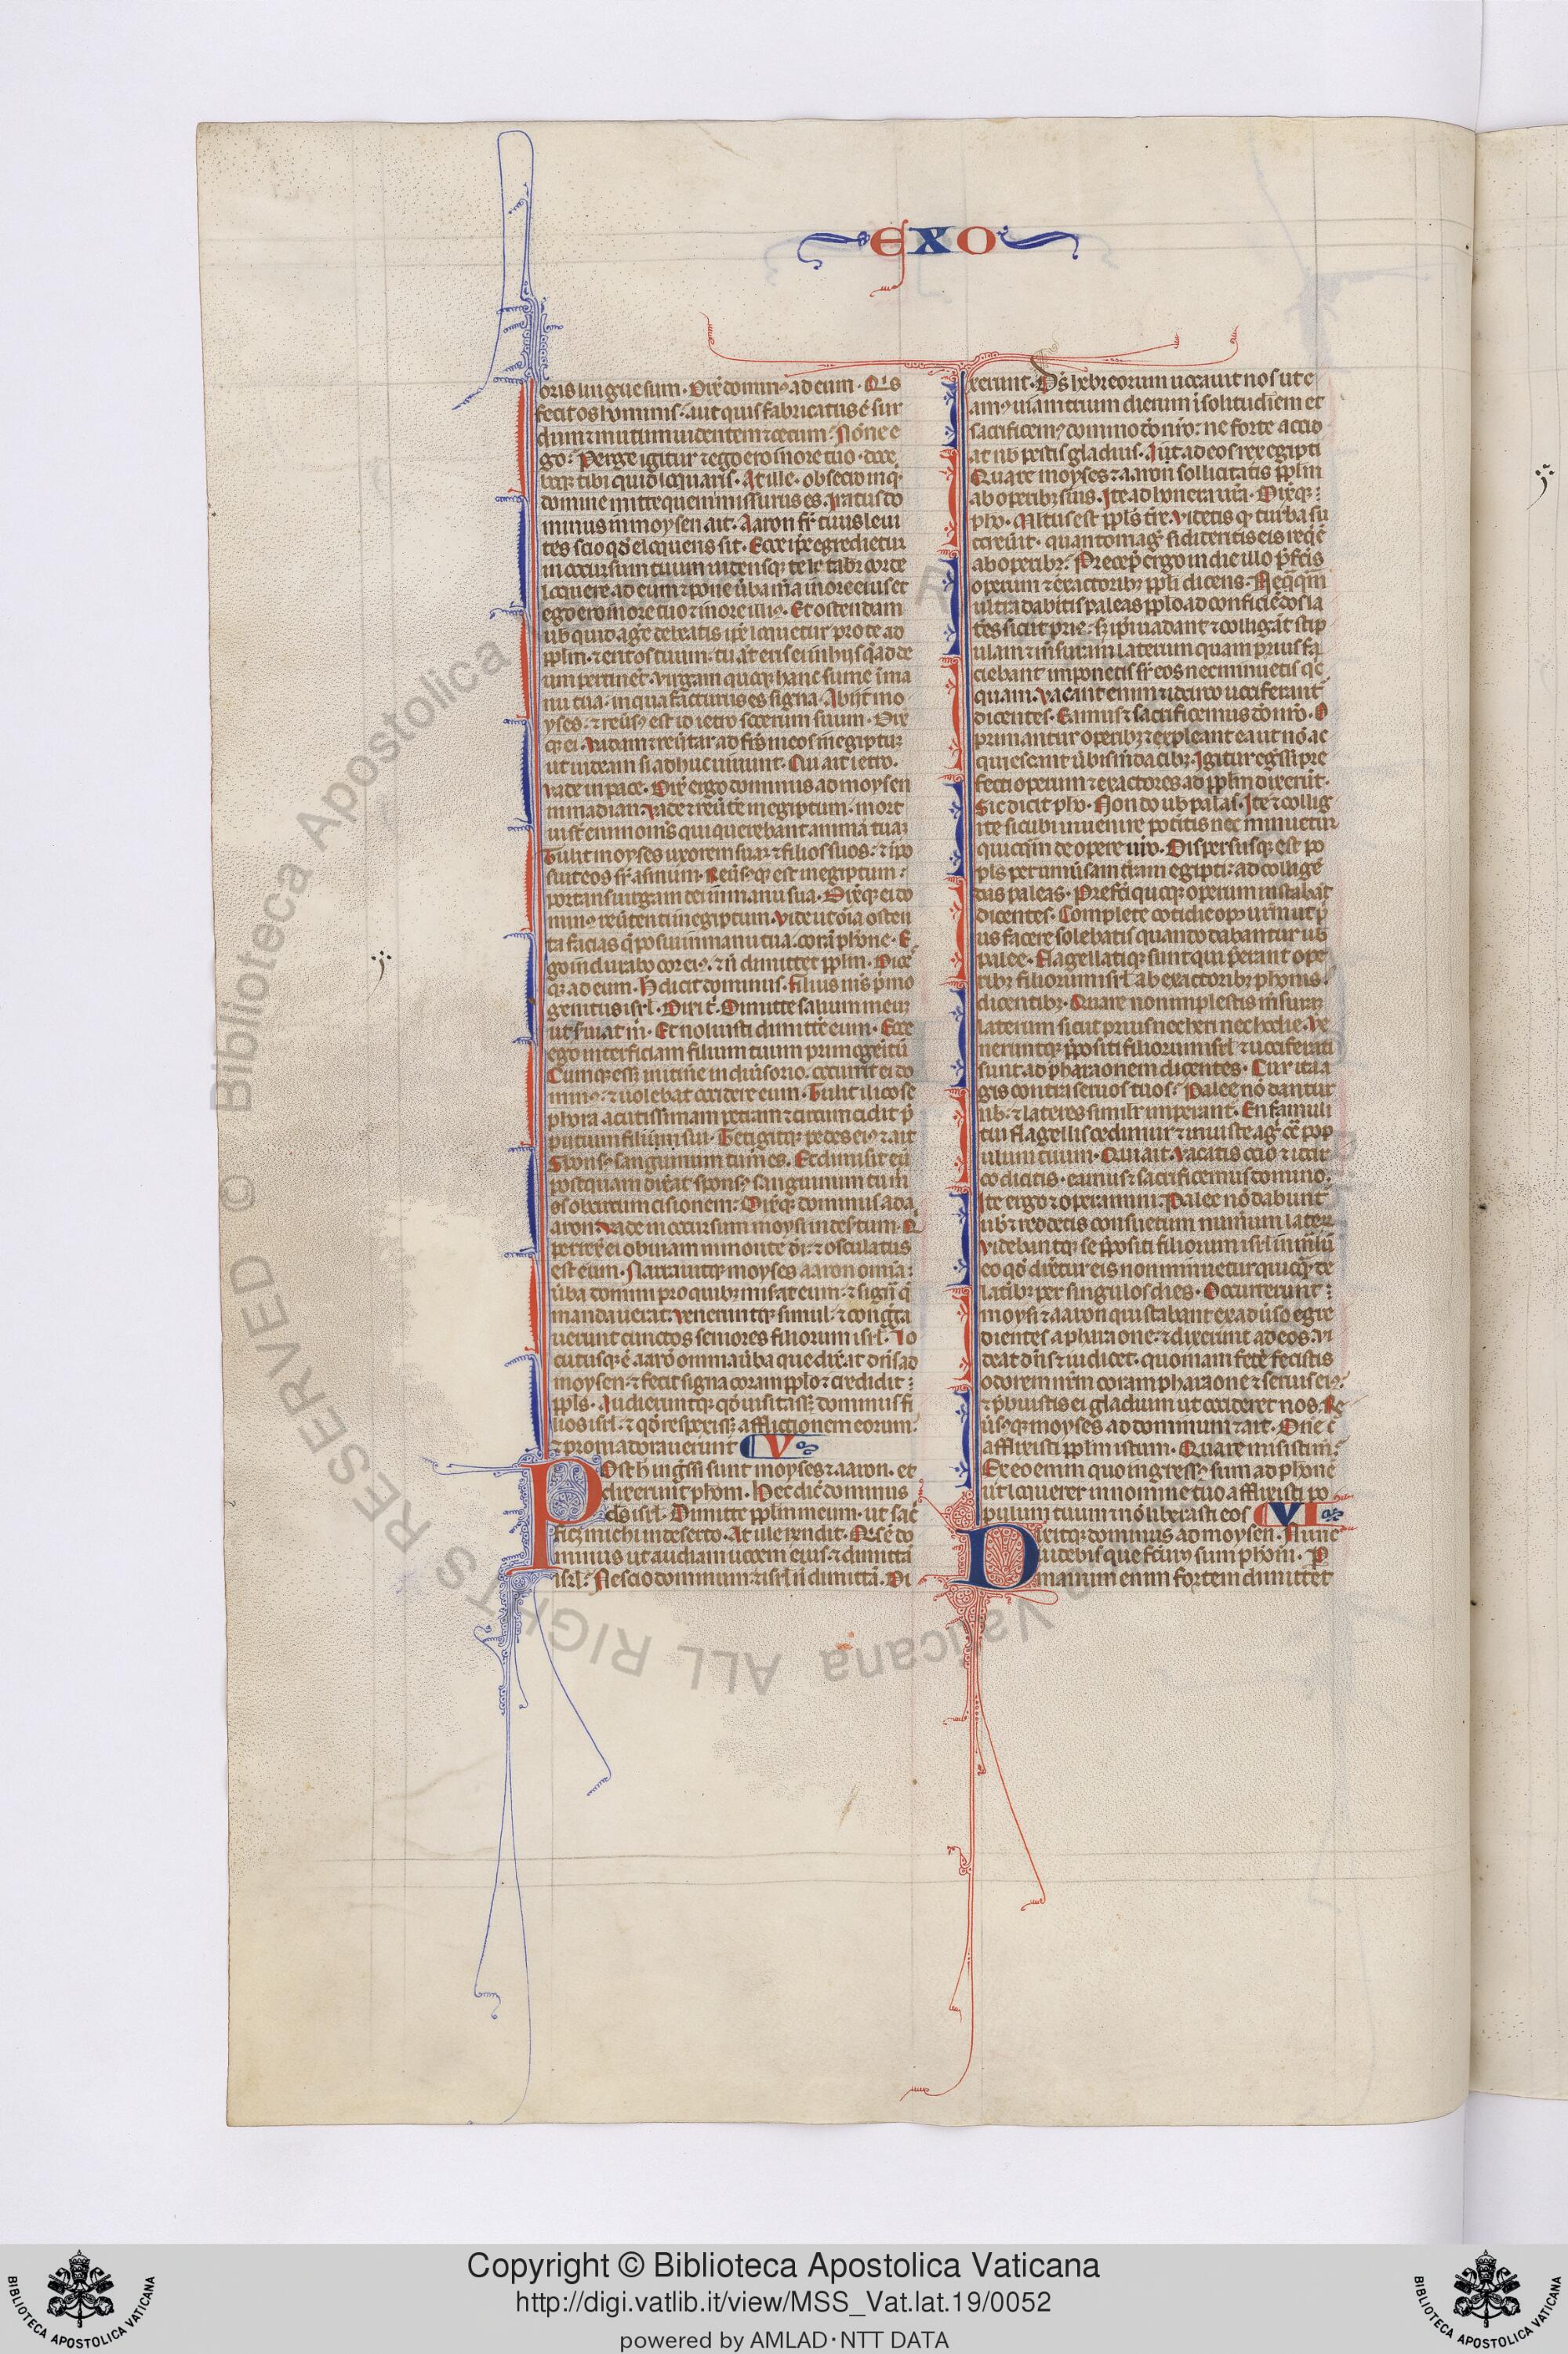 EXO
oris lingue sum. Dix̄ domin⁹ ad eum. Q̄is
fecit os hominis. aut quis fabricatus ē sur
dum ⁊ mutum uidentem ⁊ cecum. Nōne e
go. Perge igitur ⁊ ego ero in ore tuo. doce
boq; tibi quid loquaris. At ille. obsecro inq̄
domine mitte quem missurus es. Iratus do
minus in moysen ait. Aaron fr̄ tuus leui
tes scio qd̄ eloquens sit. Ecce ip̄e egredietur
in occursum tuum uidensq; te letabr̄ corde
loquere ad eum ⁊ pone ūba mā in ore eius et
ego ero in ore tuo ⁊ in ore illi⁹. Et ostendam
uob quid agēr debeatis ip̄e loquetur pro te ad
pplm. ⁊ erit os tuum. tu aūt eris ei in hijs q̄ ad de
um pertinēt. Virgam quoq; hanc sume ī ma
nu tua. in qua facturus es signa. Abijt mo
yses. ⁊ reūs⁹ est ad ietro socerum suum. Dix̄
q; ei. Vadam ⁊ reūtar ad fr̄s meos in egiptuꝫ
ut uideam si adhuc uiuunt. Cui ait ietro.
vade in pace. Dix̄ ergo dominus ad moysen
in madian. Vade ⁊ reūte in egiptum. mort
ui st̄ enim om̄s qui querebant animā tuaꝫ
Tulit moyses uxorem suaꝫ ⁊ filios suos. ⁊ ipo
suit eos sr̄ asinum. Reūsq; est in egiptum.
portans uirgam dei in manu sua. Dix̄q; ei do
min⁹ reūtenti in egiptum. Vide ut oīa osten
ta facias q̄ posui in manu tua. corā phōne. E
go indurabo cor ei⁹. ⁊ n̄ dimittet pplm. Dice
q; ad eum. H̄ dicit dominus. filius m̄s p̄mo
genitus isrl. Dixi t̄. Dimitte filium meuꝫ
ut s̄uiat m̄. Et noluisti dimittē eum. Ecce
ego interficiam filium tuum primogenitū
Cumq; ess; in itinē in diūsorio. occurrit ei do
min⁹. ⁊ uolebat occidere eum. Tulit ilico se
phora acutissimam petram ⁊ circumcidit p̄
putium filii sui. Tetigitq; pedes ei⁹ ⁊ ait
Spons⁹ sanguinum tu m̄ es. Et dimisit eū
postquam dix̄at spons⁹ sanguinum tu m̄
es ob circumcisionem. Dix̄q; dominus ad a
aron. Vade in occursum moysi in desertum. Q
perrex̄ ei obuiam in monte dī. ⁊ osculatus
est eum. Narrauitq; moyses aaron omīa
ūba domini pro quib; mis̄at eum. ⁊ sign̄ q̄
mandauerat. Veneruntq; simul. ⁊ conḡga
uerunt cunctos seniores filiorum isrl. Lo
cutusq; ē aarō omnia ūba que dix̄at dn̄s ad
moysen. ⁊ fecit signa coram pplo ⁊ credidit
ppls. Audieruntq; qd̄ uisitass; dominus fi
lios isrl. ⁊ qd̄ respexiss; afflictionem eorum.
⁊ proni adorauerunt V
Post h̄ ingr̄ssi sunt moyses ⁊ aaron. et
dixerunt phōni. Hec dic̄ dominus
ds̄ isrl. Dimitte pplm meum. ut sac̄
ficꝫ michi in deserto. At ille rendit. Q̄is ē do
minus ut audiam uocem eius. ⁊ dimittā
isrl. Nescio dominum. ⁊ isrl n̄ dimittā. Di
xerunt. Ds̄ hebreorum uocauit nos ut e
am⁹ uiam trium dierum ī solitudinem et
sacrificem⁹ domino dō nr̄o. ne forte accid
at nob pestis ⁊ gladius. Ait ad eos rex egipti
Quare moyses ⁊ aaron sollicitatis pplm
ab operib; suis. Ite ad honera ur̄a. Dix̄q;
pho. Multus est ppls tr̄e. Videtis q̄ turba su
ccreūit. quanto maḡ si dederitis eis reqiē
ab operib;. Precep̄ ergo in die illo p̄fectis
operum ⁊ exactorib; ppli dicens. Neq̄qm̄
ultra dabitis paleas pplo ad conficiēdos la
tes sicut prius. s; ip̄i uadant ⁊ colligāt stip
ulam ⁊ m̄suram laterum quam prius fa
ciebant imponetis sr̄ eos nec minuetis qc̄
quam. Vacant enim ⁊ idcirco uociferant̄
dicentes. Eamus ⁊ sacrificemus dō nr̄o. O
primantur operib; ⁊ expleant ea ut nō ac
quiescant ūbis mdacib;. Igitur egr̄ssi pre
fecti operum ⁊ exactores ad pplm dixerūt.
Sic dicit pho. Non do uob paleas. Ite ⁊ collig
ite sicubi inuenire potitis nec minuetur
quicq̄m de opere ur̄o. Dispersusq; est po
pls per uniūsam tr̄am egipti. ad colligē
das paleas. Prefecti quoq; operum instabāt
dicentes. Complete cotidie op⁹ ur̄m ut p̄
us facere solebatis quando dabantur uob
palee. Flagellatiq; sunt qui p̄erant ope
rib; filiorum isrl ab exactorib; phōnis.
dicentib;. Quare non impletis m̄suraꝫ
laterum sicut prius nec heri nec hodie. Ve
neruntq; p̄positi filiorum isrl ⁊ uociferati
sunt ad pharaonem dicentes. Cur ita a
gis contra seruos tuos. Palee nō dantur
nob. ⁊ lateres simil̄r imperant̄. En famuli
tui flagellis cedimur ⁊ iniuste aḡ cō pop
ulum tuum. Qui ait. Vacatis ocio ⁊ idcir
co dicitis. eamus ⁊ sacrificemus domino.
Ite ergo ⁊ operamini. Palee nō dabunt̄
uob ⁊ reddetis consuetum numerum later
Videbantq; se p̄positi filiorum isrl in malū
eo qd̄ diceretur eis non minuetur quicq̄ de
laterib; per singulos dies. Occurrerunt
moysi ⁊ aaron qui stabant ex adūso egre
dientes a pharaone. ⁊ dixerunt ad eos. Vi
deat dn̄s ⁊ iudicet. quoniam fetē fecistis
odorem nr̄m coram pharaone ⁊ seruis ei⁹.
⁊ p̄buistis ei gladium ut occideret nos. Re
ūs⁹q; moyses ad dominum ⁊ ait. Dn̄e c̄
afflixisti pplm istum. Quare misisti me
Ex eo enim quo ingress⁹ sum ad phōnē
ut loquerer in nomine tuo afflixisti po
pulum tuum ⁊ nō liberasti eos VI
Dixitq; dominus ad moysen. Nunc
uidebis que fctur⁹ sum phōni. P
manum enim fortem dimittet
Biblioteca Apostolica Vaticana ALL RIGHTS RESERVED ©
Copyright © Biblioteca Apostolica Vaticana
http://digi.vatlib.it/view/MSS_Vat.lat.19/0052
powered by AMLAD·NTT DATA
BIBLIOTECA APOSTOLICA VATICANA
BIBLIOTECA APOSTOLICA VATICANA